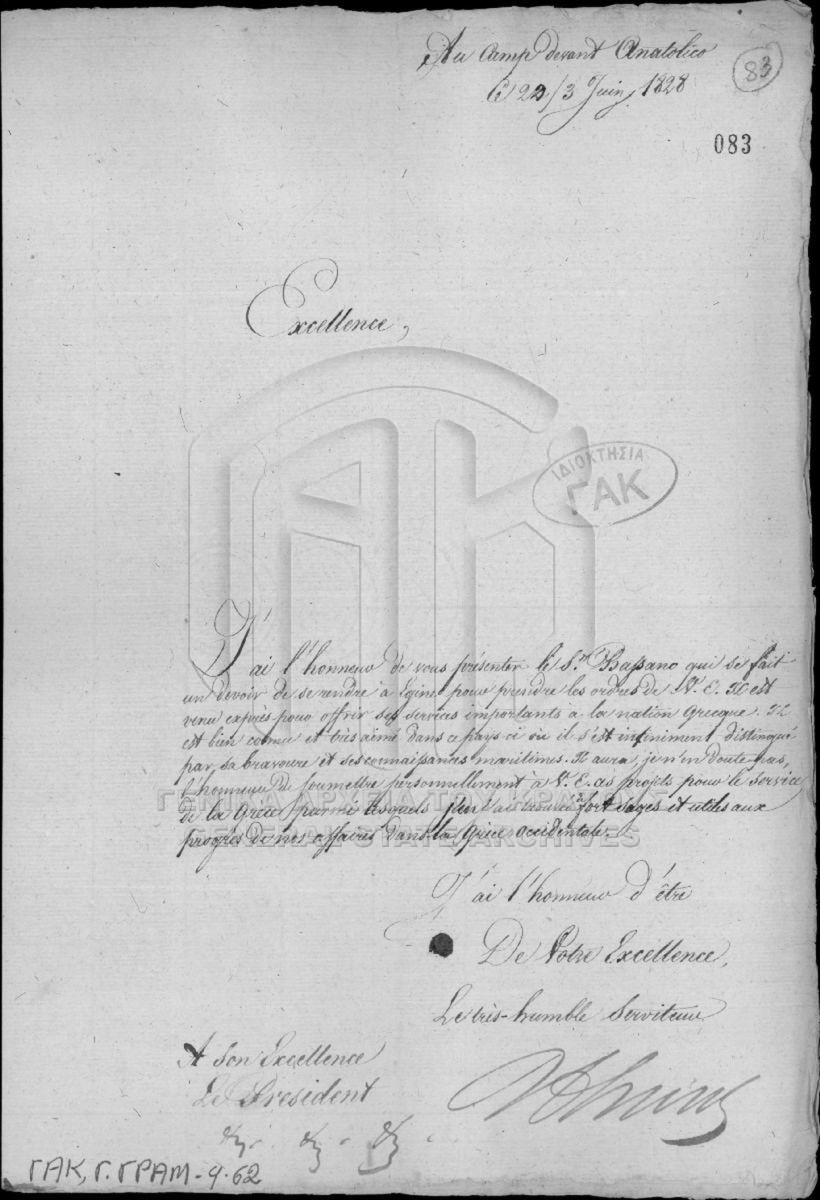 Au Camp devant Anatolico
le 22/3 Juin 1828
83
083
Excellence,
ΙΔΙΟΚΤΗΣΙΑ
ΓΑΚ
J'ai l'honneur de vous présenter le Sr. Bassano qui se fait
un devoir de se rendre à Egine pour prendre les ordres de V. E. Il est
venu exprès pour offrir ses services importants à la nation Grecque. Il
est bien connu et très aimé dans ce pays ci où il s'est infiniment distingué
par sa bravoure et ses connaissances maritimes. Il aura, je n'en doute pas,
l'honneur de soumettre personnellement à V. E. des projets pour le service
de la Grèce parmi lesquels j'en ai trouvé fort sages et utiles aux
progrès de nos affaires dans la Grèce occidentale.
ΓΕΝΙΚΑ ΑΡΧΕΙΑ ΤΟΥ ΚΡΑΤΟΥΣ
GENERAL STATE ARCHIVES
J'ai l'honneur d'être
De Votre Excellence,
Le très-humble Serviteur
A Son Excellence
Le President
&. &. &.
ΓΑΚ, Γ. ΓΡΑΜ - 9. 62